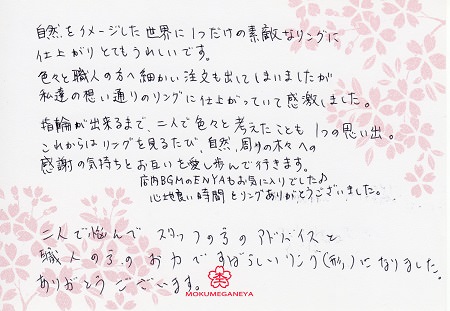 自然をイメージした世界に1つだけの素敵なリングに
仕上がりとてもうれしいです。
色々と職人の方へ細かい注文も出してしまいましたが
私達の想い通りのリングに仕上がっていて感激しました。
指輪が出来るまで、二人で色々と考えたことも1つの思い出。
これからはリングを見るたび、自然、周りの木々への
感謝の気持ちとお互いを愛し歩んで行きます。
店内BGMのENYAもお気に入りでした♪
心地良い時間とリングありがとうございました。
二人で悩んでスタッフの方のアドバイスと
職人の方のお力ですばらしいリング(形)になりました。
ありがとうございます。
MOKUMEGANEYA